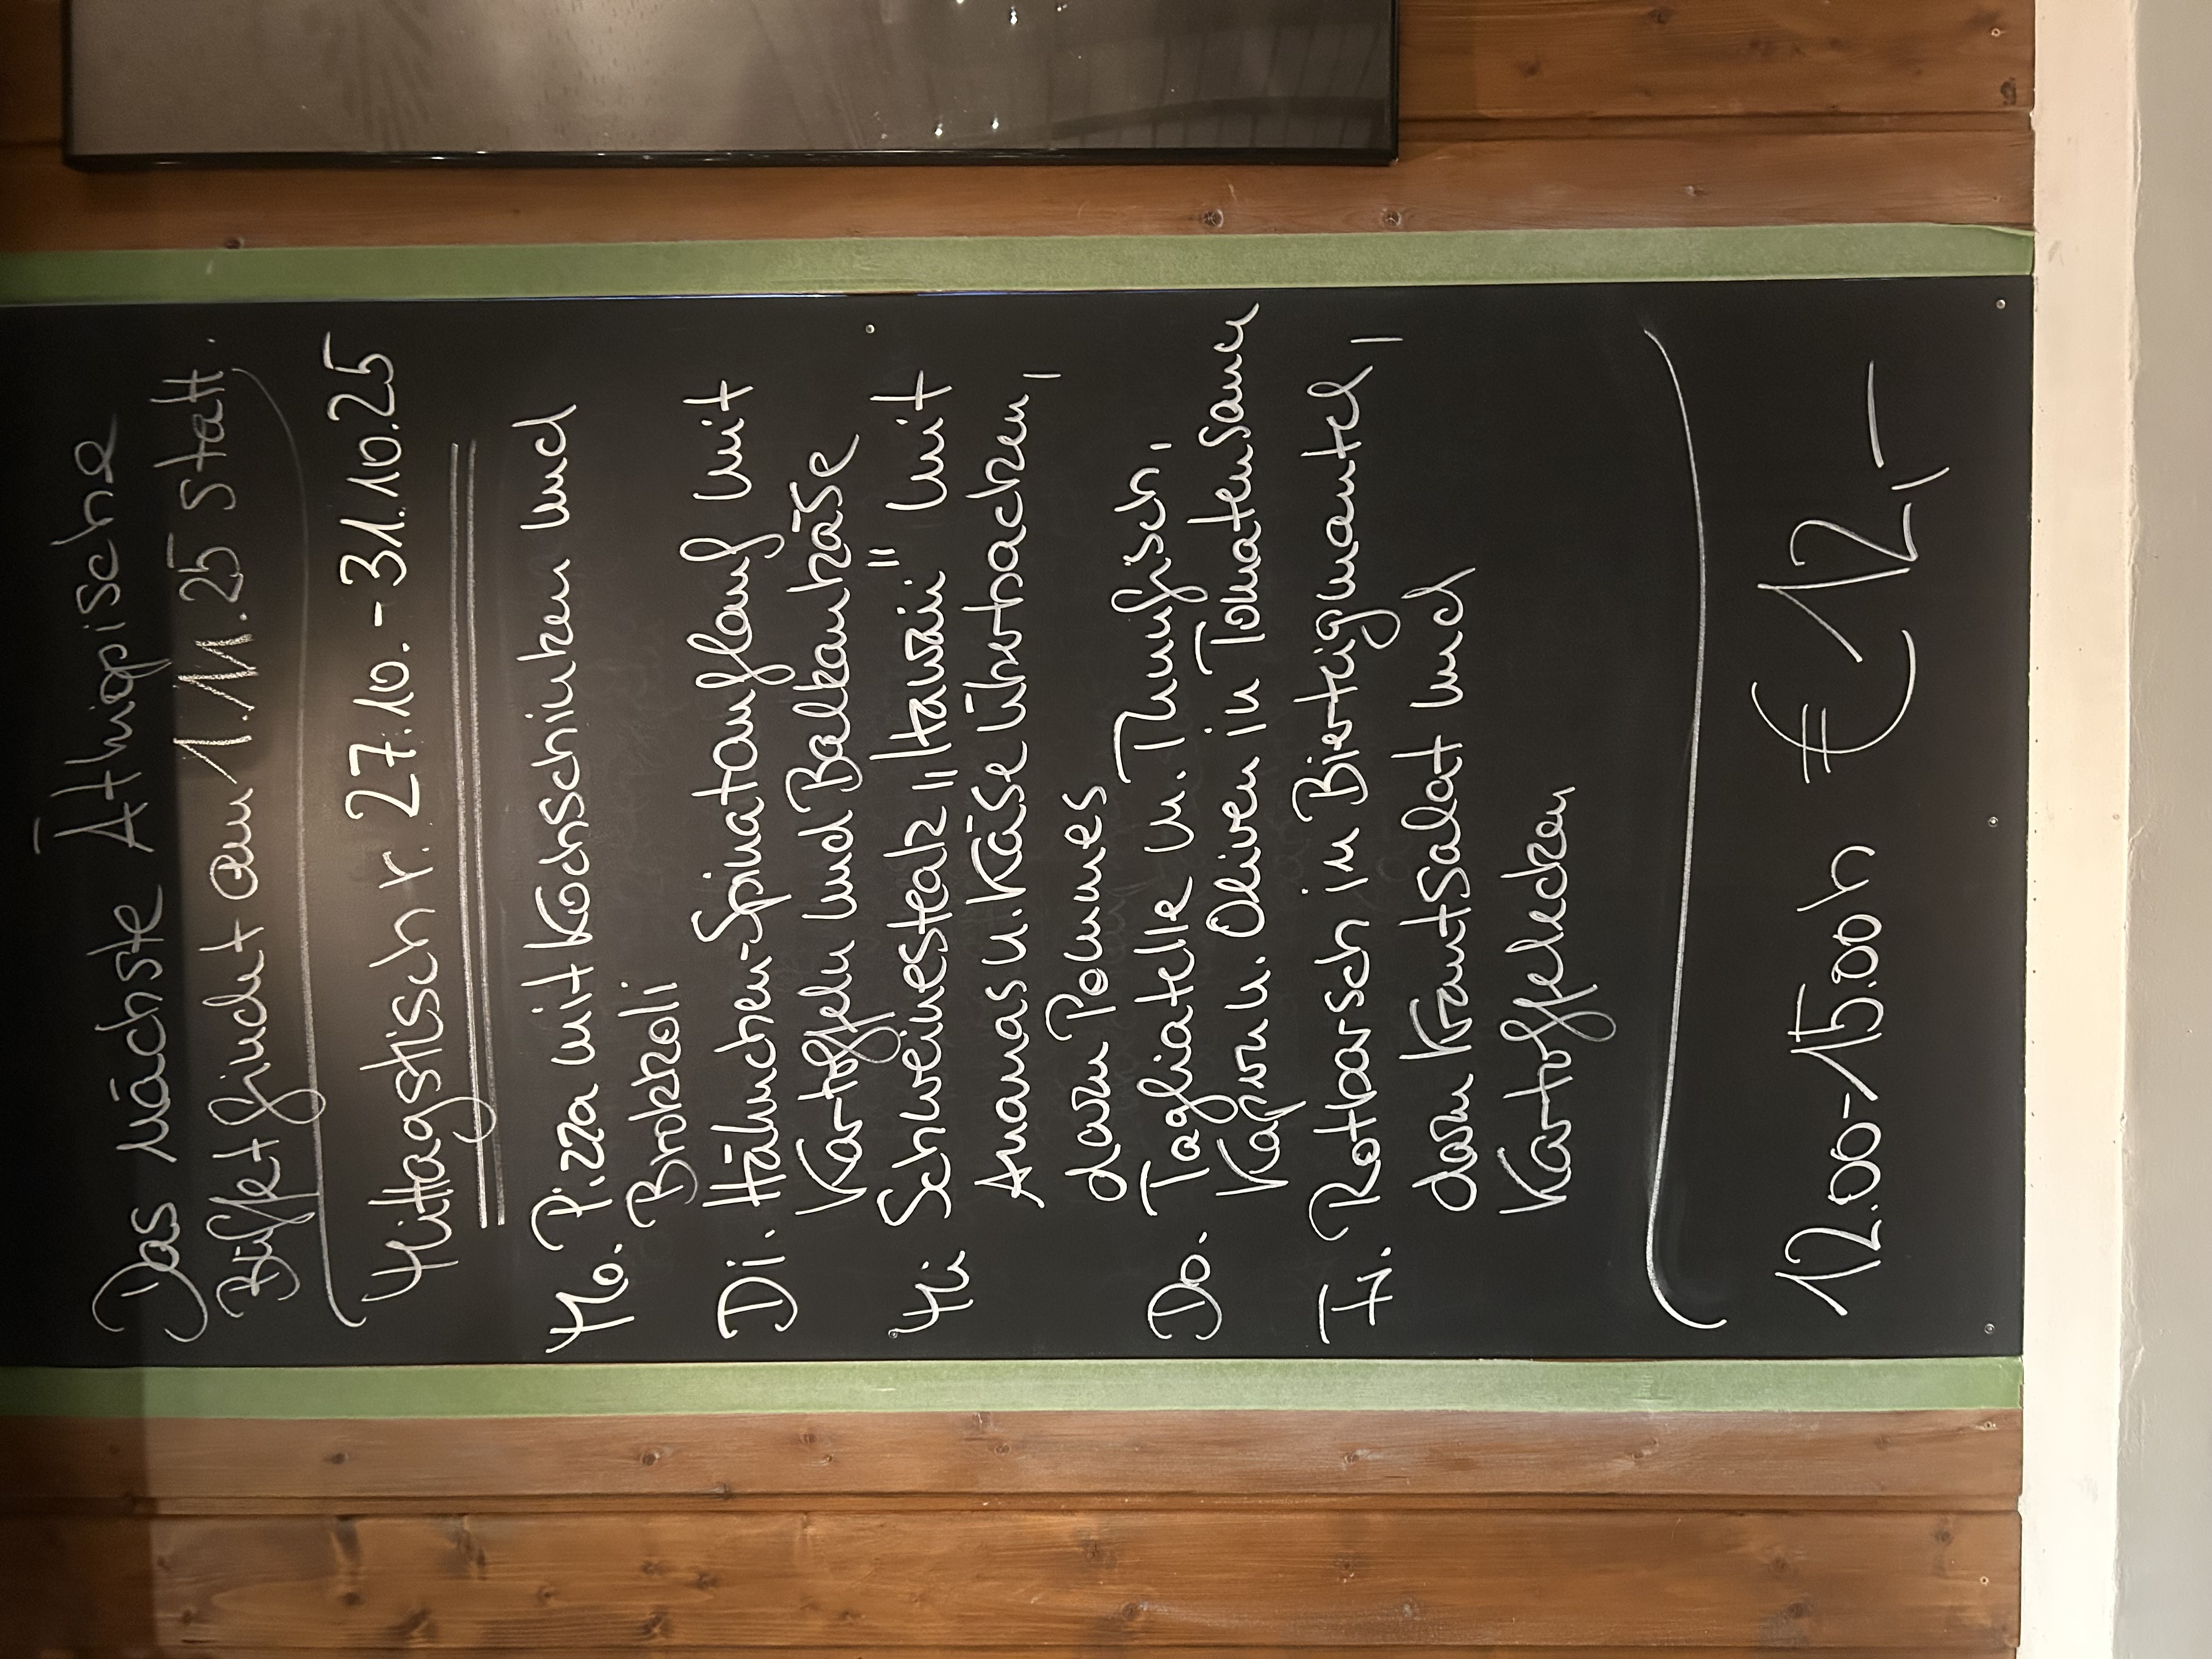 Das nächste Äthiopische
Büffet findet am 1.11.25 statt.
Mittagstisch v. 27.10.-31.10.25
Mo. Pizza mit Kochschinken und
Brokkoli
Di. Hähnchen-Spinatauflauf mit
Kartoffeln und Balkankäse
Mi Schweinesteak "Hawaii" mit
Ananas u. Käse überbacken,
dazu Pommes
Do. Tagliatelle m. Thunfisch,
Kapern u. Oliven in Tomatensauce
Fr. Rotbarsch im Bierteigmantel,
dazu Krautsalat und
Kartoffelecken
12.00-15.00h € 12,-